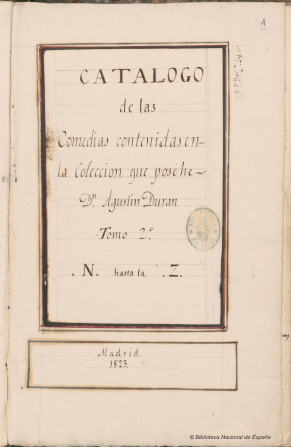 1
CATALOGO
de las
Comedias contenidas en
la Coleccion que poséhe
Dn. Agustin Duran
Tomo 2.º
.N. hasta la .Z.
Madrid.
1823.
© Biblioteca Nacional de España